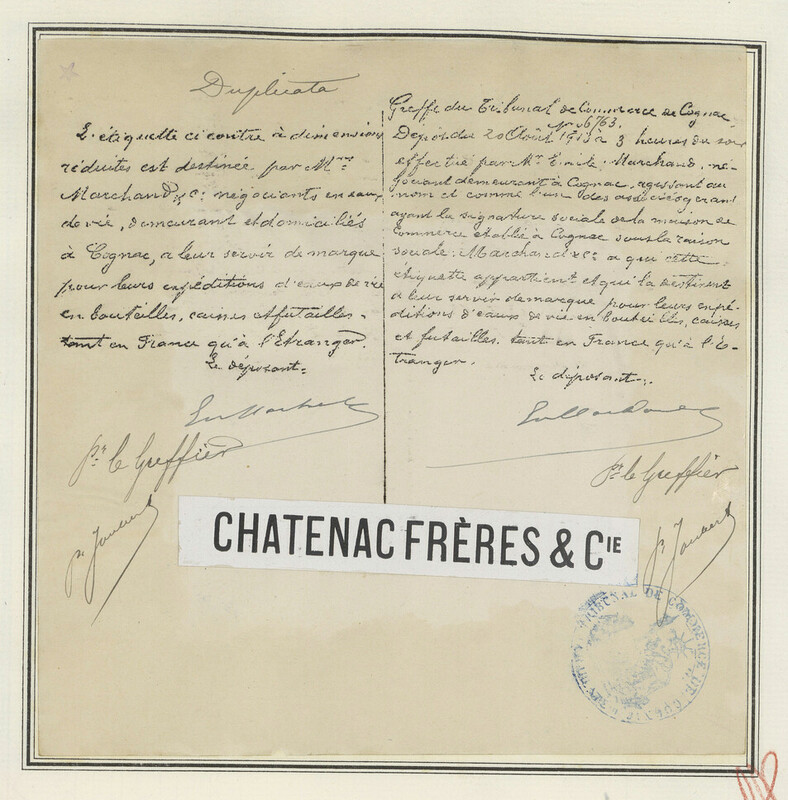 Duplicata
L'étiquette ci contre à dimensions
réduites est destinée par Mrs
Marchand & Co négociants en eaux
de vie, demeurant et domiciliés
à Cognac, a leur servir de marque
pour leurs expéditions d'eaux de vie
en bouteilles, caisses et futailles
tant en France qu'à l'Etranger.
Le déposant.
Pr le Greffier
Greffe du Tribunal de Commerce de Cognac
No 6763.
Dépôt du 20 Août 1913 à 3 heures du soir
effectué par Mr Emile Marchand, né-
gociant demeurant à Cognac, agissant au
nom et comme l'un des associés gérant
ayant la signature sociale de la maison de
commerce établie à Cognac sous la raison
sociale: Marchand & Co a qui cette
étiquette appartient et qui la destinent
a leur servir de marque pour leurs expé-
ditions d'eaux de vie en bouteilles, caisses
et futailles tant en France qu'à l'É-
tranger.
Le déposant.
Pr le Greffier
CHATENAC FRÈRES & CIE
TRIBUNAL DE COMMERCE DE COGNAC